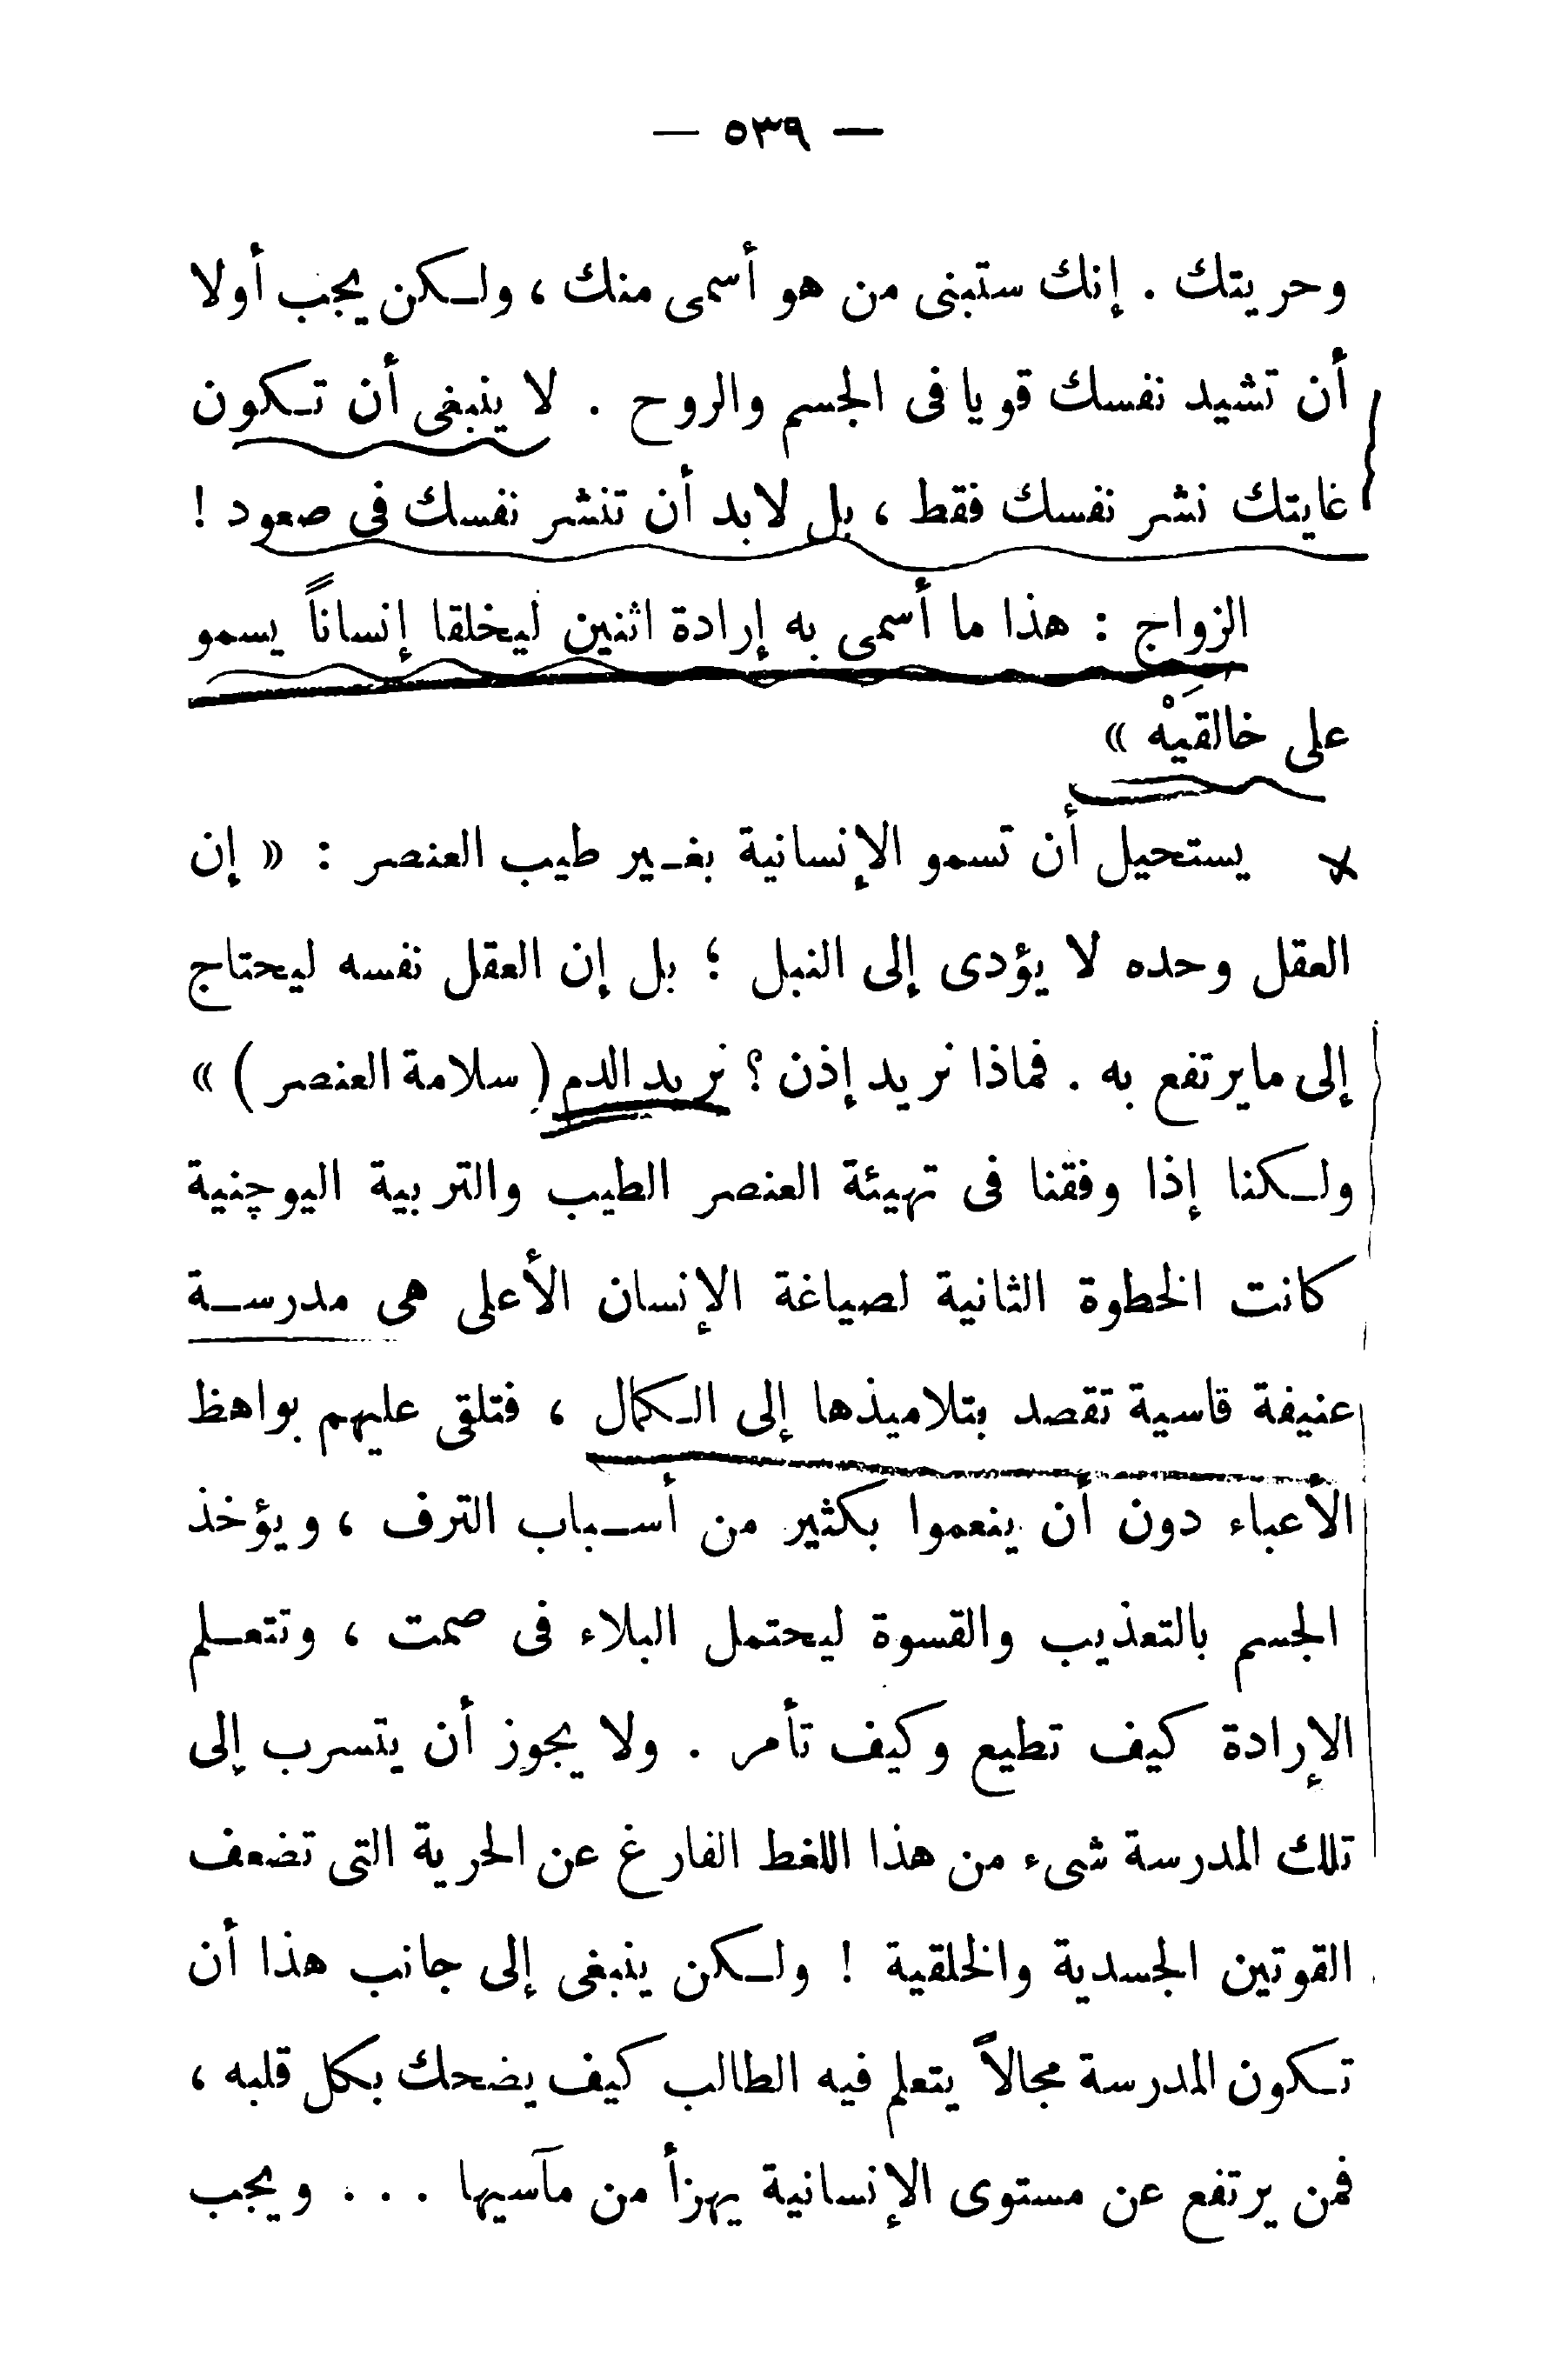 — ٥٣٩ —
وحريتك . إنك ستبنى من هو أسمى منك ، ولكن يجب أولا
أن تشيد نفسك قويا فى الجسم والروح . لا ينبغى أن تكون
غايتك نشر نفسك فقط ، بل لابد أن تنشر نفسك فى صعود !
الزواج : هذا ما أسمى به إرادة اثنين ليخلقا إنساناً يسمو
على خالقيَهْ »
يستحيل أن تسمو الإنسانية بغير طيب العنصر : « إن
العقل وحده لا يؤدى إلى النبل ؛ بل إن العقل نفسه ليحتاج
إلى ما يرتفع به . فماذا نريد إذن ؟ نريد الدم ( سلامة العنصر ) »
ولكنا إذا وفقنا فى تهيئة العنصر الطيب والتربية اليوچنية
كانت الخطوة الثانية لصياغة الإنسان الأعلى هى مدرسة
عنيفة قاسية تقصد بتلاميذها إلى الكمال ، فتلقى عليهم بواهظ
الأعباء دون أن ينعموا بكثير من أسباب الترف ، ويؤخذ
الجسم بالتعذيب والقسوة ليحتمل البلاء فى صمت ، وتتعلم
الإرادة كيف تطيع وكيف تأمر . ولا يجوز أن يتسرب إلى
تلك المدرسة شىء من هذا اللغط الفارغ عن الحرية التى تضعف
القوتين الجسدية والخلقية ! ولكن ينبغى إلى جانب هذا أن
تكون المدرسة مجالاً يتعلم فيه الطالب كيف يضحك بكل قلبه ،
فمن يرتفع عن مستوى الإنسانية يهزأ من مآسيها . . . ويجب